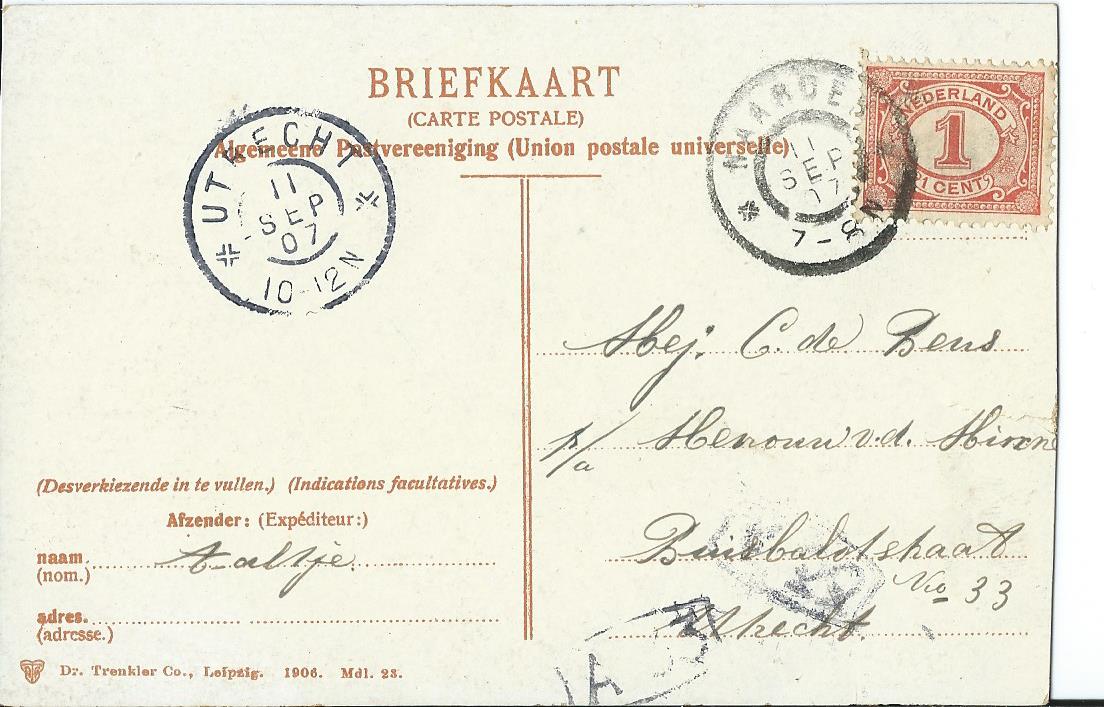 BRIEFKAART
(CARTE POSTALE)
Algemeene Postvereeniging (Union postale universelle)
UTRECHT
11
SEP
07
10-12N
NAARDEN
11
SEP
07
7-8N
NEDERLAND
1
1 CENT
Mej. C. de Bens
p/a Mevrouw v.d.
Utrecht.
No 33
(Desverkiezende in te vullen.) (Indications facultatives.)
Afzender: (Expéditeur:)
naam. Aaltje
(nom.)
adres.
(adresse.)
Dr. Trenkler Co., Leipzig. 1906. Mdl. 23.